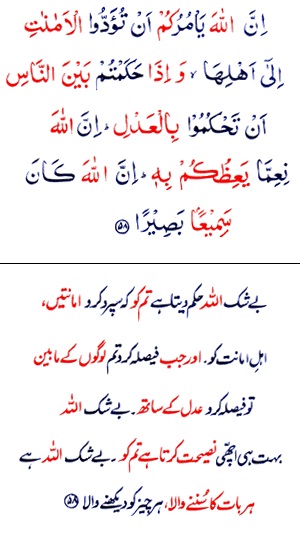 اِنَّ اللهَ يَاْمُرُكُمْ اَنْ تُؤَدُّوا الْاَمٰنٰتِ
اِلٰٓى اَهْلِهَا ۙ وَ اِذَا حَكَمْتُمْ بَيْنَ النَّاسِ
اَنْ تَحْكُمُوْا بِالْعَدْلِ ؕ اِنَّ اللهَ
نِعِمَّا يَعِظُكُمْ بِهٖ ؕ اِنَّ اللهَ كَانَ
سَمِيْعًۢا بَصِيْرًا ﴿۵۸﴾
بے شک اللہ حکم دیتا ہے تم کو کہ سپرد کرو امانتیں،
اہلِ امانت کو۔ اور جب فیصلہ کرو تم لوگوں کے مابین
تو فیصلہ کرو عدل کے ساتھ۔ بے شک اللہ
بہت ہی اچھّی نصیحت کرتا ہے تم کو۔ بے شک اللہ ہے
ہر بات کا سُننے والا، ہر چیز کو دیکھنے والا ﴿۵۸﴾